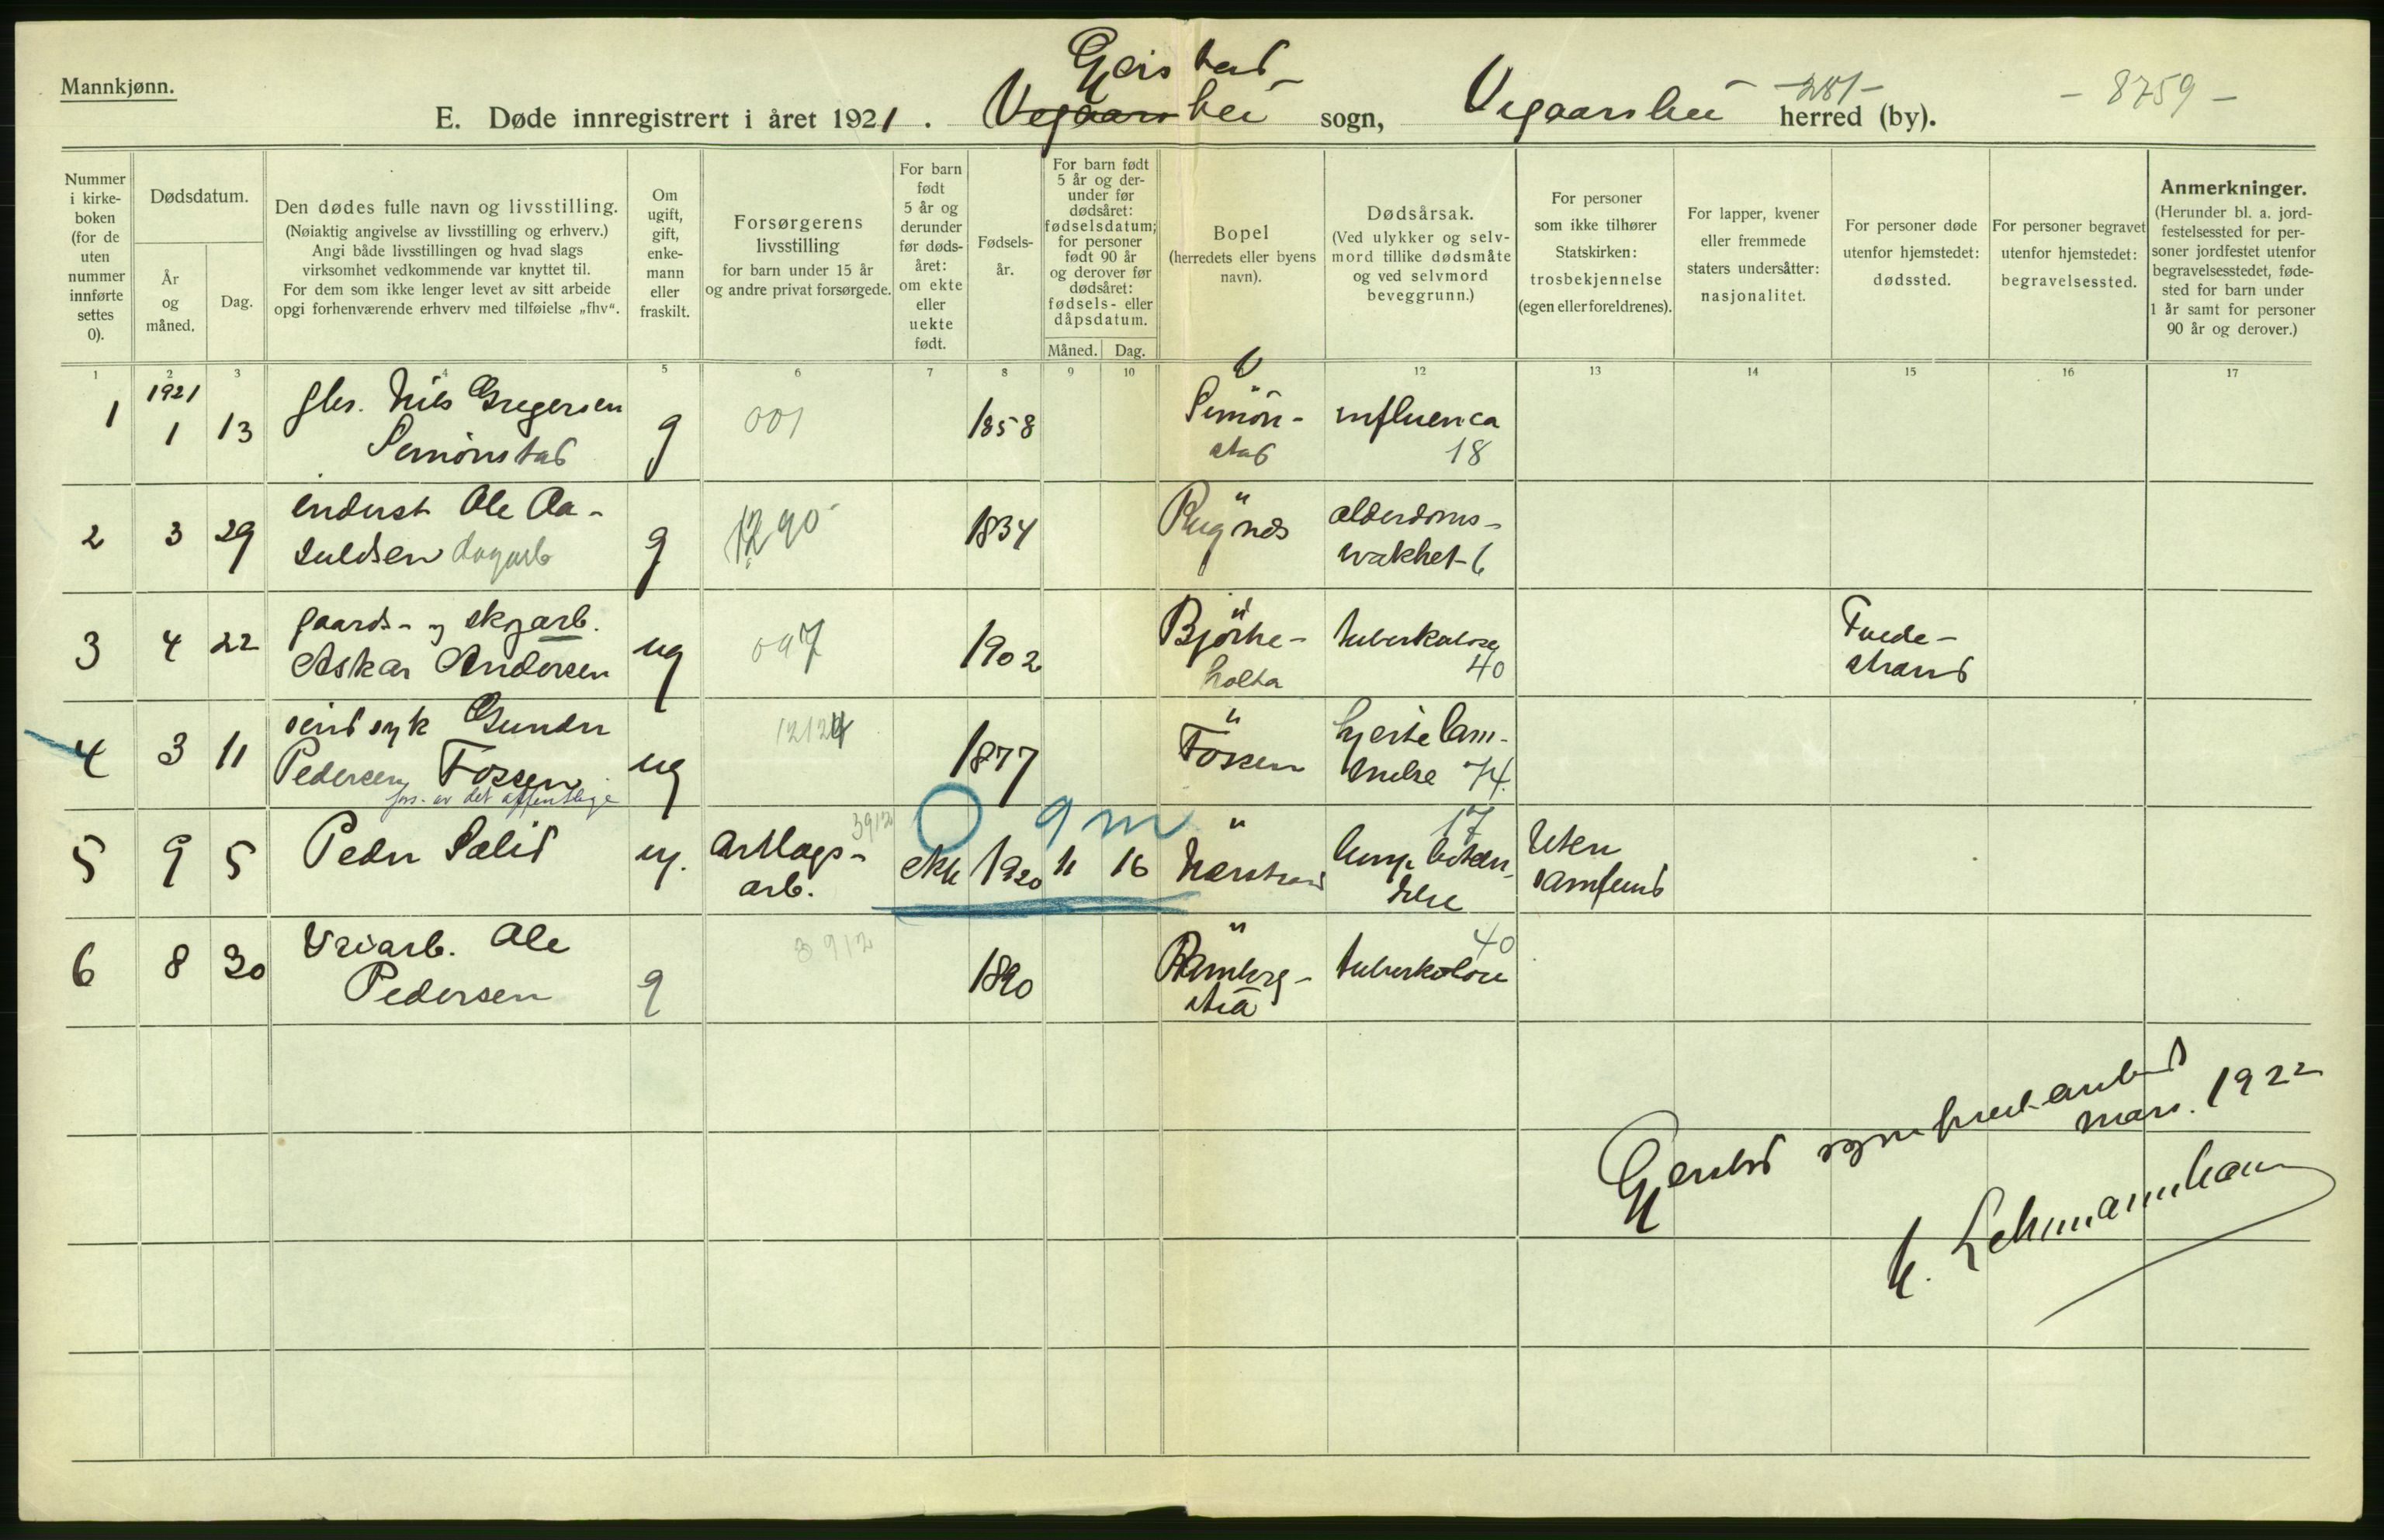 Mannkjønn.
Gjerstad
E. Døde innregistrert i året 1921. Vegaarshei sogn, Vegaarshei -281- herred (by). - 8759 -
Nummer i kirke-boken (for de uten nummer innførte settes 0).
Dødsdatum.
År og måned.
Dag.
Den dødes fulle navn og livsstilling.
(Nøiaktig angivelse av livsstilling og erhverv.)
Angi både livsstillingen og hvad slags
virksomhet vedkommende var knyttet til.
For dem som ikke lenger levet av sitt arbeide
opgi forhenværende erhverv med tilføielse „fhv“.
Om ugift, gift, enke-mann eller fraskilt.
Forsørgerens
livsstilling
for barn under 15 år
og andre privat forsørgede.
For barn født 5 år og derunder før døds-året: om ekte eller uekte født.
Fødsels-år.
For barn født 5 år og der-under før dødsåret: fødselsdatum; for personer født 90 år og derover før dødsåret: fødsels- eller dåpsdatum.
Måned. Dag.
Bopel
(herredets eller byens
navn).
Dødsårsak.
(Ved ulykker og selv-
mord tillike dødsmåte
og ved selvmord
beveggrunn.)
For personer
som ikke tilhører
Statskirken:
trosbekjennelse
(egen eller foreldrenes).
For lapper, kvener
eller fremmede
staters undersåtter:
nasjonalitet.
For personer døde
utenfor hjemstedet:
dødssted.
For personer begravet
utenfor hjemstedet:
begravelsessted.
Anmerkninger.
(Herunder bl. a. jord-
festelsessted for per-
soner jordfestet utenfor
begravelsesstedet, føde-
sted for barn under
1 år samt for personer
90 år og derover.)
1 2 3 4 5 6 7 8 9 10 12 13 14 15 16 17
1921
1 1 13 gbr. Nils Gregersen g 001 1858 Simon- influenca
Simonstad stad 18
2 3 29 inderst Ole Aa- g 1290 1834 " alderdoms-
suldsen dagarb Rugnes svakhet 6
3 4 22 gaards- og skogarb. ug 097 1902 " Bjørke- tuberkulose Tvede-
Askar Andersen holta 40 strand
4 3 11 sindsyk Gunder ug 12124 1877 " hjertelam-
Pedersen Fossen Fossen melse 74.
fors. av det offentlige
0 9 m 17
5 9 5 Peder Salid ug. anlægs- 3912 ekte 1920 11 16 " lungebeten- Uten
arb. delse samfund
6 8 30 Veiarb. Ole g 3912 1890 " tuberkulose 40
Pedersen Ramberg-
stea
Gjerstad sogneprestembed
mars. 1922